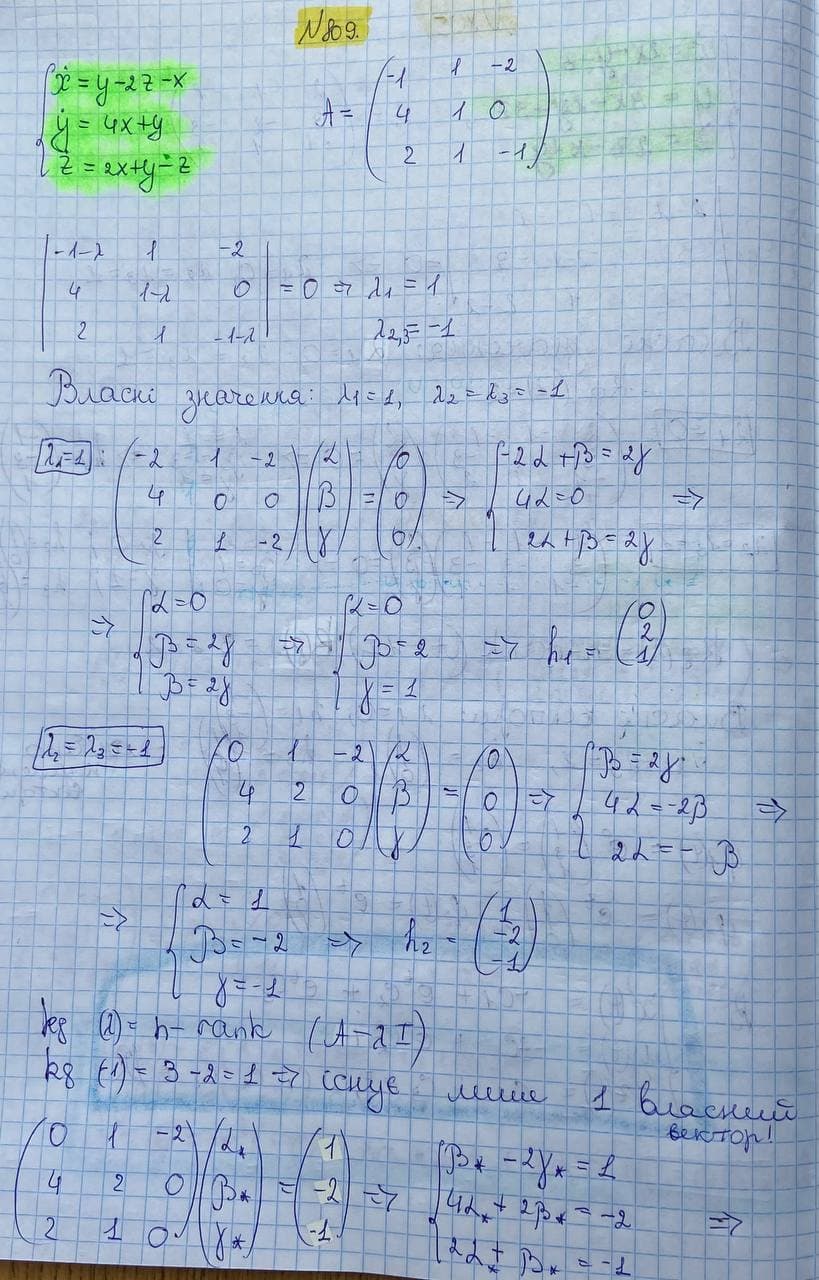 №809.
{ ẋ = y-2z-x
ẏ = 4x+y
ż = 2x+y-z
A = ( -1 1 -2
4 1 0
2 1 -1 )
| -1-λ 1 -2
4 1-λ 0
2 1 -1-λ | = 0 ⇒ λ1 = 1
λ2,3 = -1
Власні значення: λ1=1, λ2=λ3=-1
λ1=1 : ( -2 1 -2
4 0 0
2 1 -2 ) ( α
β
γ ) = ( 0
0
0 ) ⇒ { -2α+β=2γ
4α=0
2α+β=2γ ⇒
⇒ { α=0
β=2γ
β=2γ ⇒ { α=0
β=2
γ=1 ⇒ h1 = ( 0
2
1 )
λ2=λ3=-1 ( 0 1 -2
4 2 0
2 1 0 ) ( α
β
γ ) = ( 0
0
0 ) ⇒ { β=2γ
4α=-2β
2α=-β ⇒
⇒ { α=1
β=-2
γ=-1 ⇒ h2 = ( 1
-2
-1 )
kg (λ) = n-rank (A-λI)
kg (-1) = 3-2=1 ⇒ існує лише 1 власний
вектор!
( 0 1 -2
4 2 0
2 1 0 ) ( α*
β*
γ* ) = ( 1
-2
-1 ) ⇒ { β* - 2γ* = 1
4α* + 2β* = -2
2α* + β* = -1 ⇒